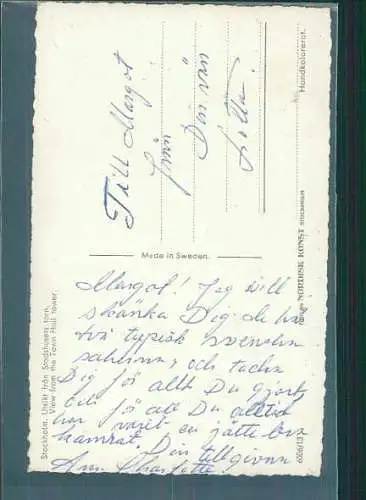 Till Margot
från
Din vän
Lotta.
Made in Sweden.
Margot! Jag vill
skänka Dig de här
två typisk svenska
sakerna, och tacka
Dig för allt Du gjort
och för att Du alltid
har varit en jätte bra
kamrat. Din tillgivna
Ann Charlotte
Stockholm. Utsikt från Stadshusets torn.
View from the Town Hall tower.
Handkolorerat.
NORDISK KONST STOCKHOLM